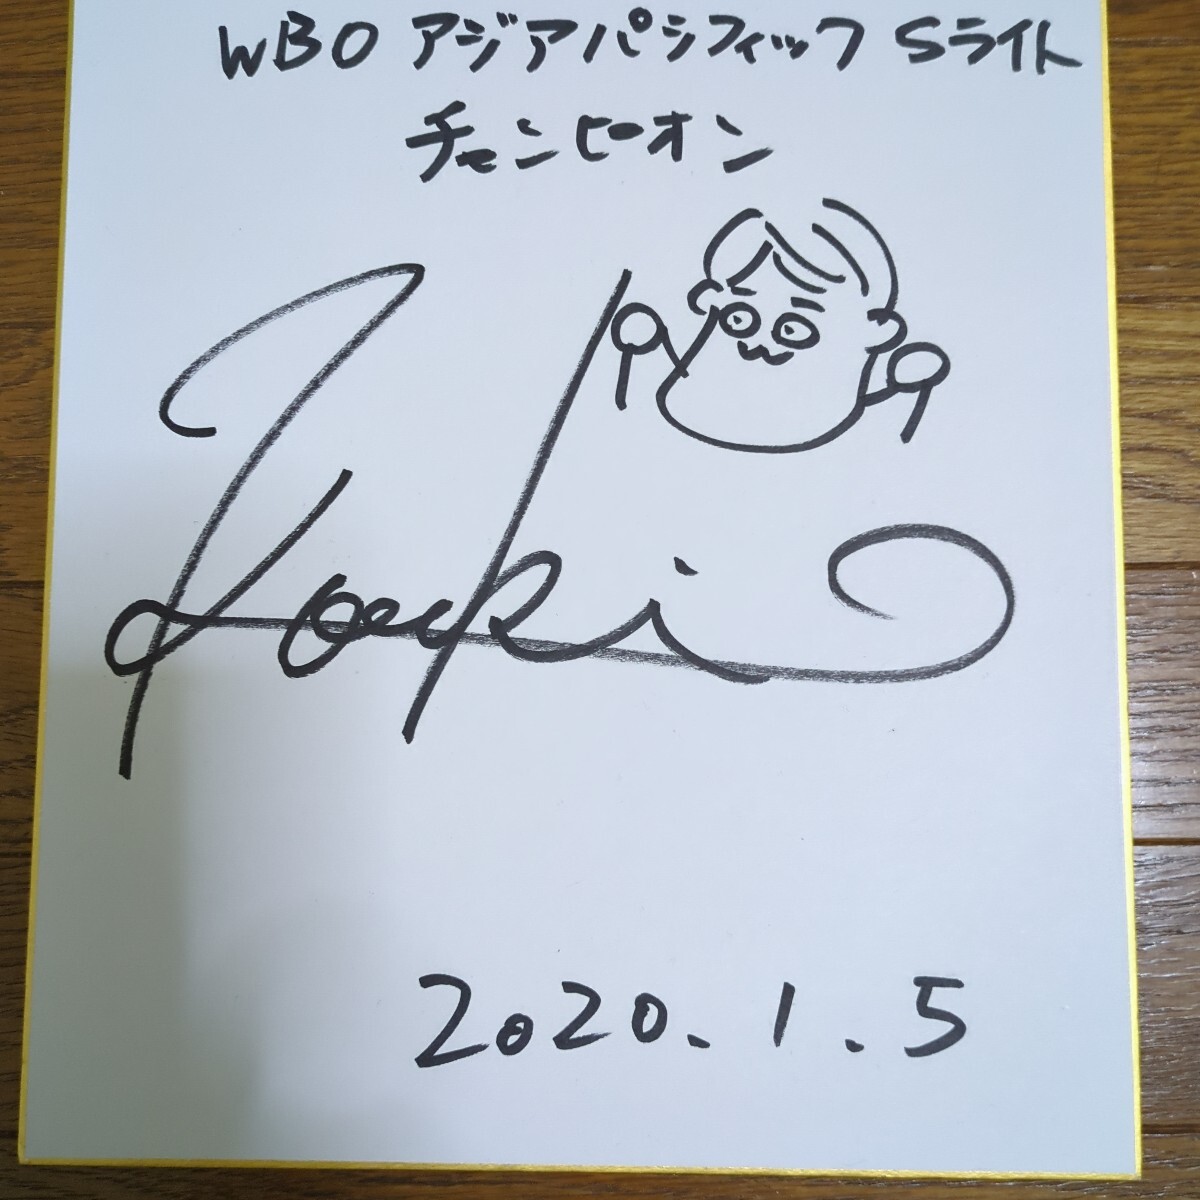 WBO アジアパシフィック Sライト
チャンピオン
Koki
2020.1.5